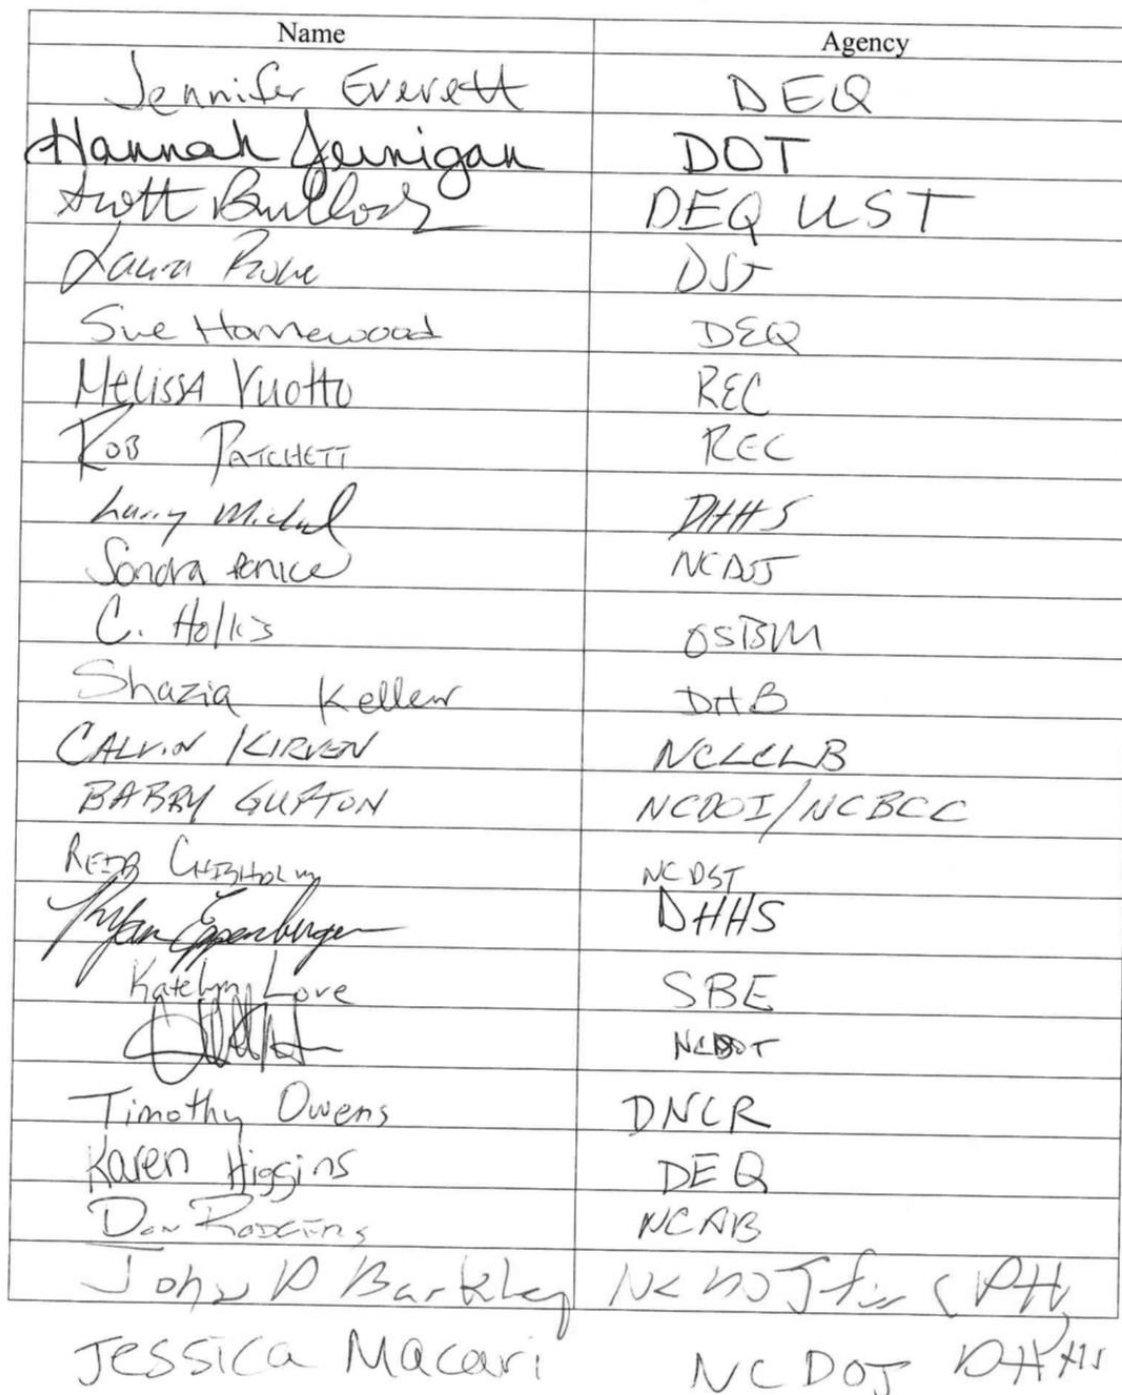 Name Agency
Jennifer Everett DEQ
Hannah Jernigan DOT
Scott Bullock DEQ UST
Laura Rowe DST
Sue Homewood DEQ
Melissa Vuotto REC
Rob Patchett REC
Larry Michael DHHS
Sondra Panico NCDOJ
C. Hollis OSBM
Shazia Keller DHB
CALVIN KIRVEN NCLCLB
BARRY GUPTON NCDOI/NCBCC
REID CHISHOLM NC DST
Ryan Eppenberger DHHS
Katelyn Love SBE
NCDOT
Timothy Owens DNCR
Karen Higgins DEQ
Don Rodgers NCAB
John P Barkley NC DOJ for CPH,
DHHS
Jessica Macari NC DOJ